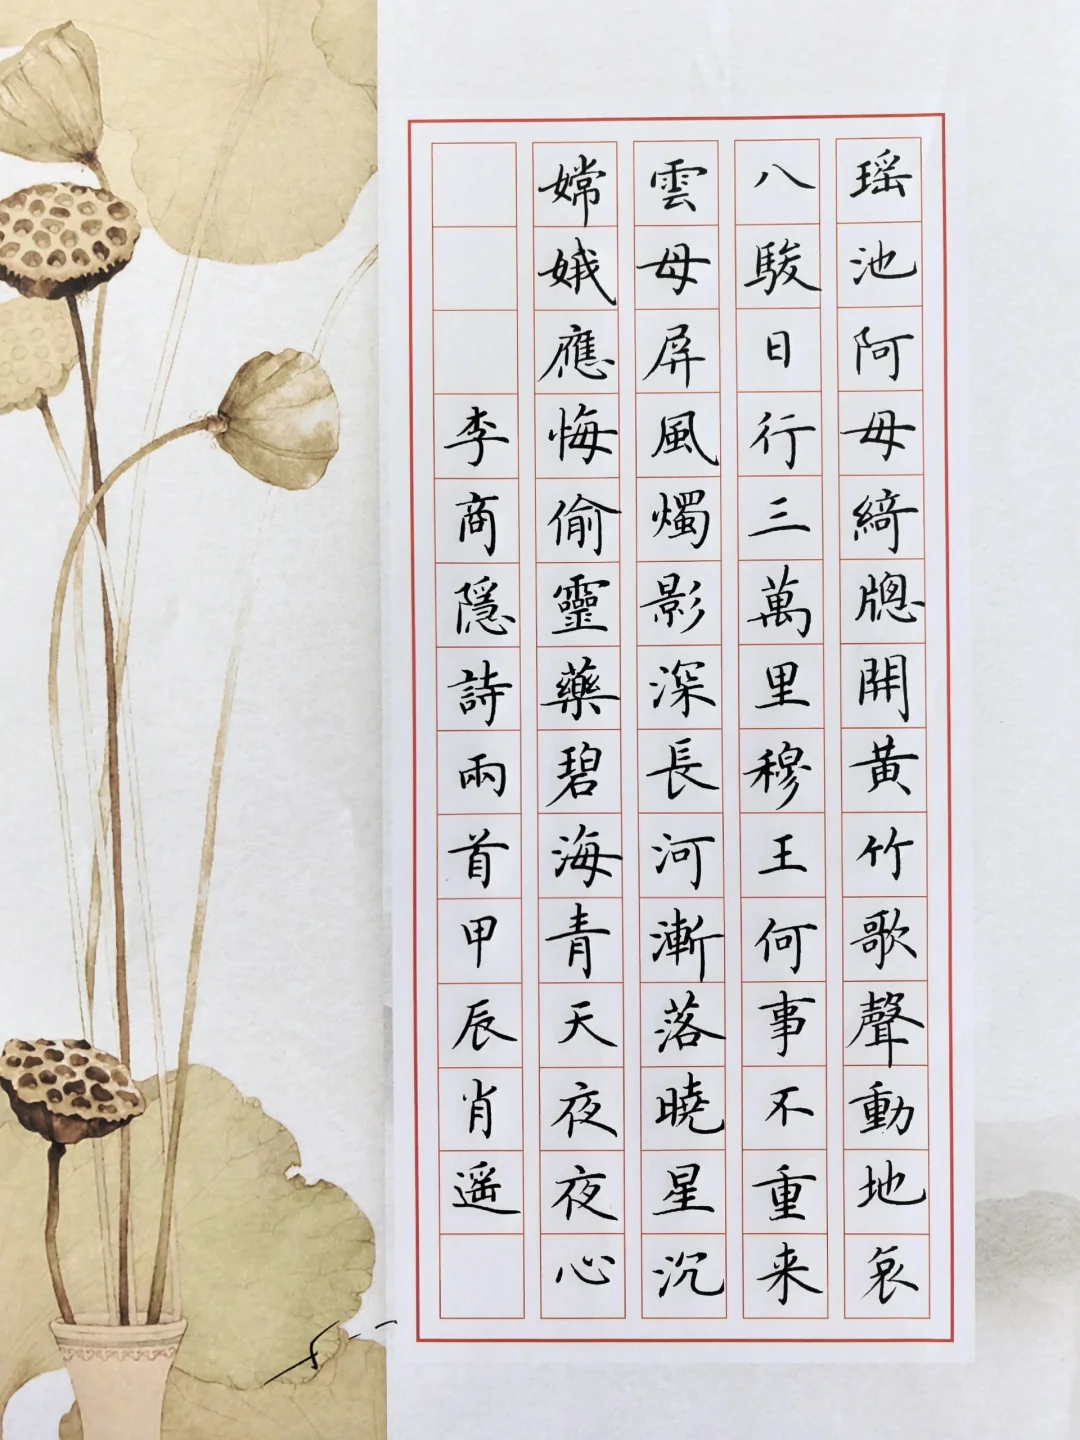 瑶池阿母綺牕開黃竹歌聲動地哀
八駿日行三萬里穆王何事不重来
雲母屏風燭影深長河漸落曉星沉
嫦娥應悔偷靈藥碧海青天夜夜心
李商隱詩兩首甲辰肖遥